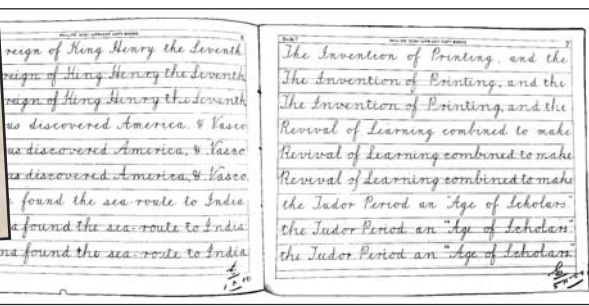 reign of King Henry the Seventh
reign of King Henry the Seventh
reign of King Henry the Seventh
us discovered America, & Vasco
us discovered America, & Vasco
us discovered America, & Vasco
found the sea-route to India
a found the sea-route to India
ma found the sea-route to India
Book 7
7
The Invention of Printing, and the
The Invention of Printing, and the
The Invention of Printing, and the
Revival of Learning combined to make
Revival of Learning combined to make
Revival of Learning combined to make
the Tudor Period an "Age of Scholars."
the Tudor Period an "Age of Scholars."
the Tudor Period an "Age of Scholars."